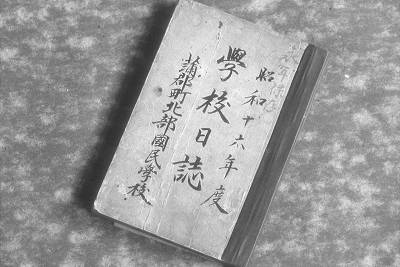 昭和十六年度
學校日誌
蒲郡町北部國民學校